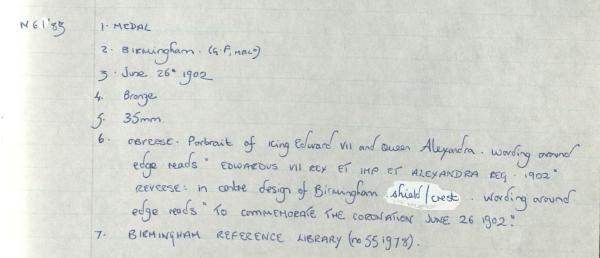 N61'85 1. MEDAL
2. BIRMINGHAM. (G.P,
3. June 26th 1902
4. Bronze
5. 35mm.
6. OBVERSE. Portrait of King Edward VII and Queen Alexandra. Wording around
edge reads "EDWARDUS VII REX ET IMP ET ALEXANDRA REG. 1902"
REVERSE: in centre design of Birmingham shield/crest. Wording around
edge reads "TO COMMEMORATE THE CORONATION JUNE 26 1902."
7. BIRMINGHAM REFERENCE LIBRARY (no SS 1978).